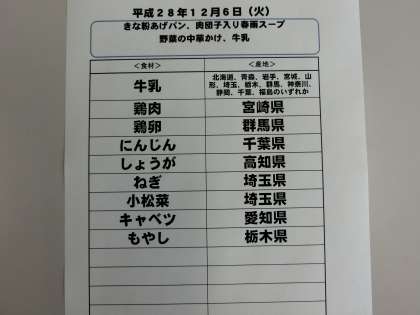 平成28年12月6日（火）
きな粉あげパン、肉団子入り春雨スープ
野菜の中華かけ、牛乳
＜食材＞ ＜産地＞
牛乳 北海道、青森、岩手、宮城、山
形、埼玉、栃木、群馬、神奈川、
静岡、千葉、福島のいずれか
鶏肉 宮崎県
鶏卵 群馬県
にんじん 千葉県
しょうが 高知県
ねぎ 埼玉県
小松菜 埼玉県
キャベツ 愛知県
もやし 栃木県